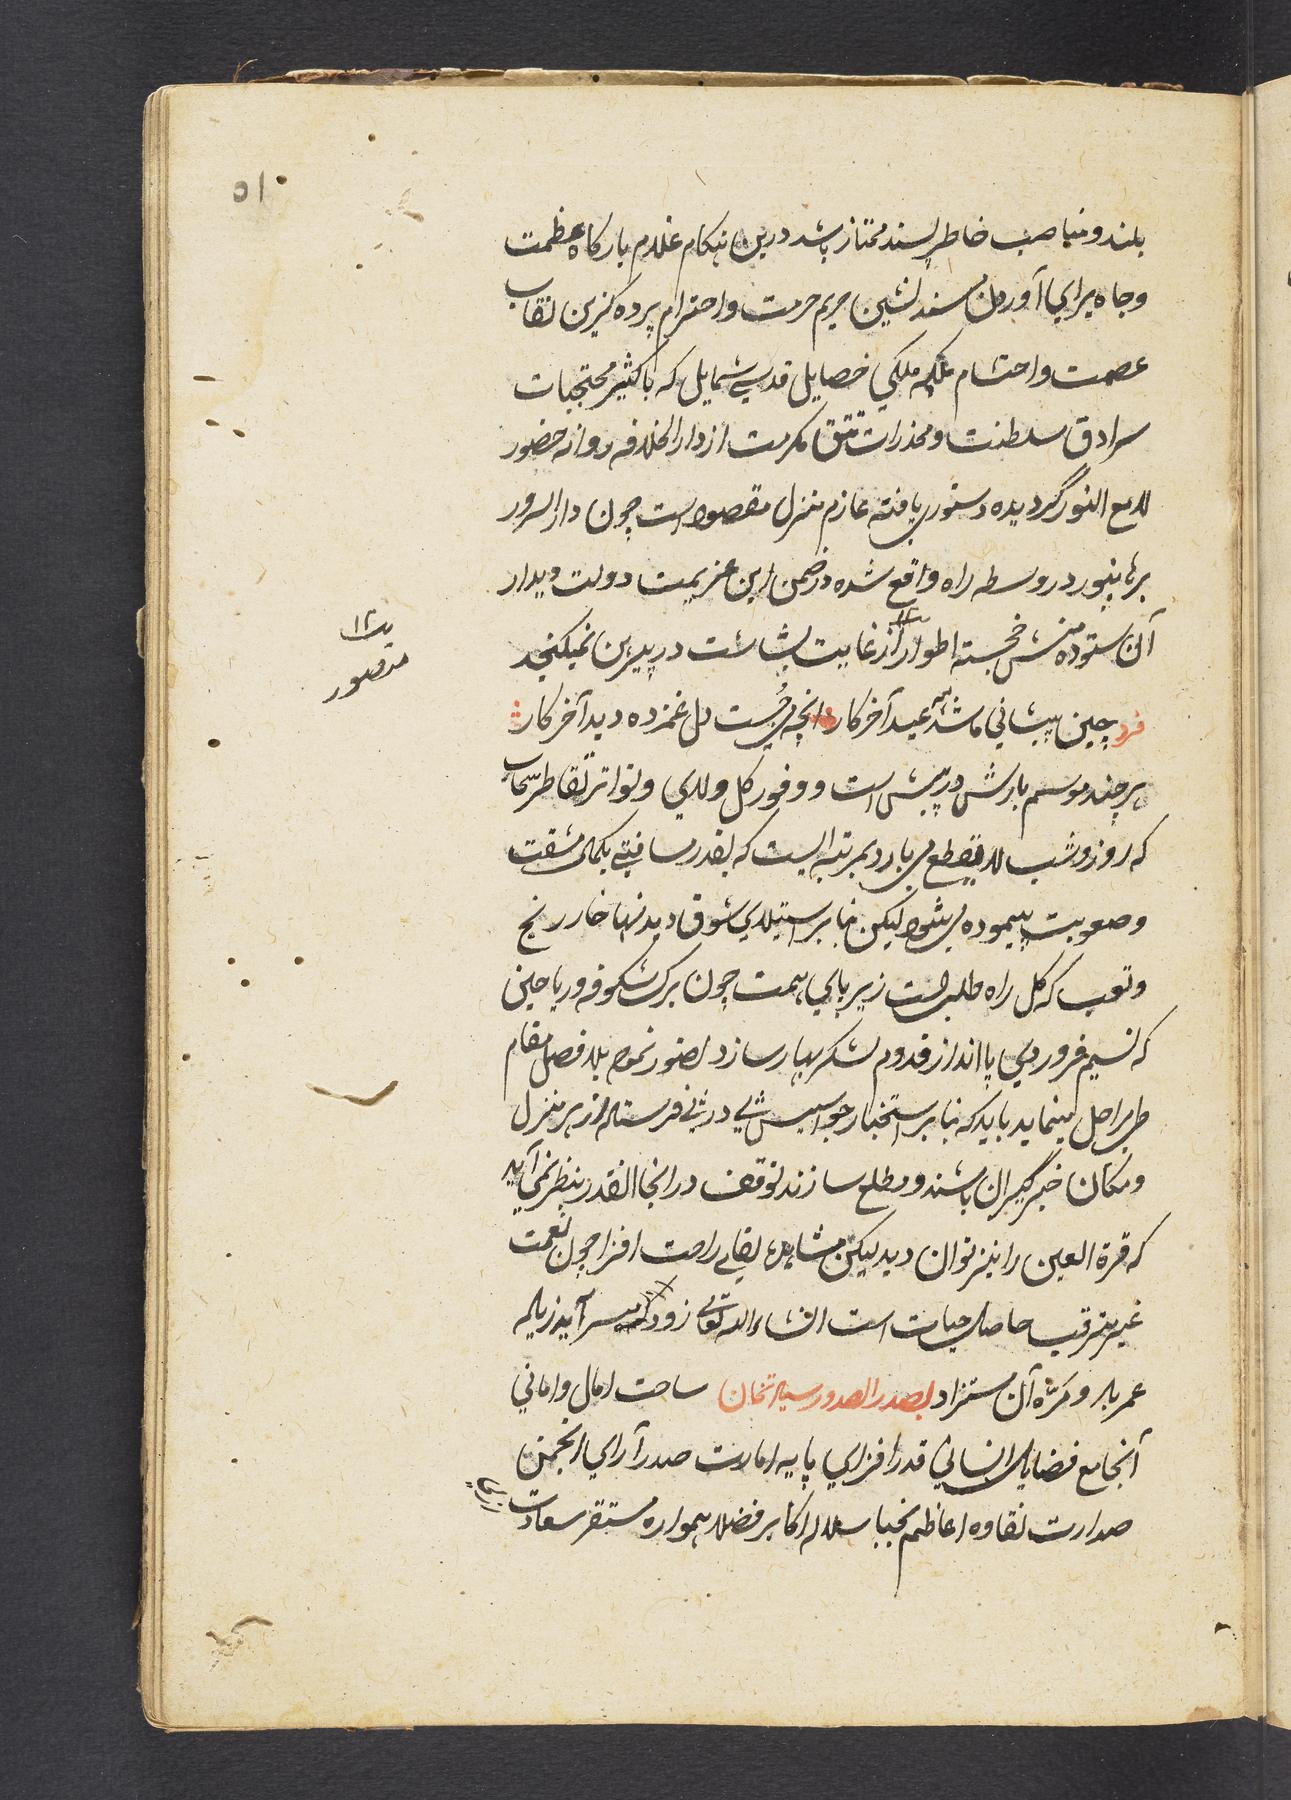 ٥١
بلند و مناصب خاطر پسند ممتاز باشد درین هنکام غلام بارکاه عظمت
وجاه برای آوردن مسند نشین حریم حرمت واحترام پرده کزین نقاب
عصمت واحتشام ملکه ملکی خصایل قدسی شمایل که باکثیر محتجبات
سرادق سلطنت ومخدرات تتق مکرمت از دارالخلافه روانه حضور
لامع النور گردیده دستوری یافته عازم منزل مقصود است چون دار السرور
برهانپور در وسطه راه واقع شده در ضمن این عزیمت دولت دیدار
آن ستوده منش خجسته اطوار از غایت بشاشت در پیرهن نمیکنجد
فرد چین پیشانی ما شد مه عید آخر کار انچه می جُست دل غمزده دید آخر کار
هر چند موسم بارش در پیش است و وفور کل ولای وتواتر تقاطر سحاب
که روز وشب لاینقطع می بارد بمرتبه ایست که بقدر مسافتی بکمال مشقت
وصعوبت پیموده می شود لیکن بنابر استیلای شوق دیدنها خار رنج
وتعب که کل راه طلب است زیر پای همت چون برک شکوفه وریاحین
که نسیم فروردی پا انداز قدوم لشکر بهار سازد تصور نموده بلا فصل مقام
طی مراحل مینماید باید که بنابر استخبار جواسیس پی در پی فرستاده از هر منزل
ومکان خبر گیران باشند ومطلع سازند توقف در انجا انقدر بنظر نمی آید
که قرة العین را نیز توان دید لیکن مشاهده لقای راحت افزا چون نعمت
غیر مترقب حاصل حیات است انشاءالله تعالی زود میسر آید زیاده
عمر باد ومَزّه آن مستزاد بصدر الصدور سیادتخان ساحت امال وامانی
آنجامع فضایل انسانی قدر افزای پایه امارت صدر آرای انجمن
صدارت نقاوه اعاظم نجبا سلاله اکابر فضلا همواره مستقر سعادت